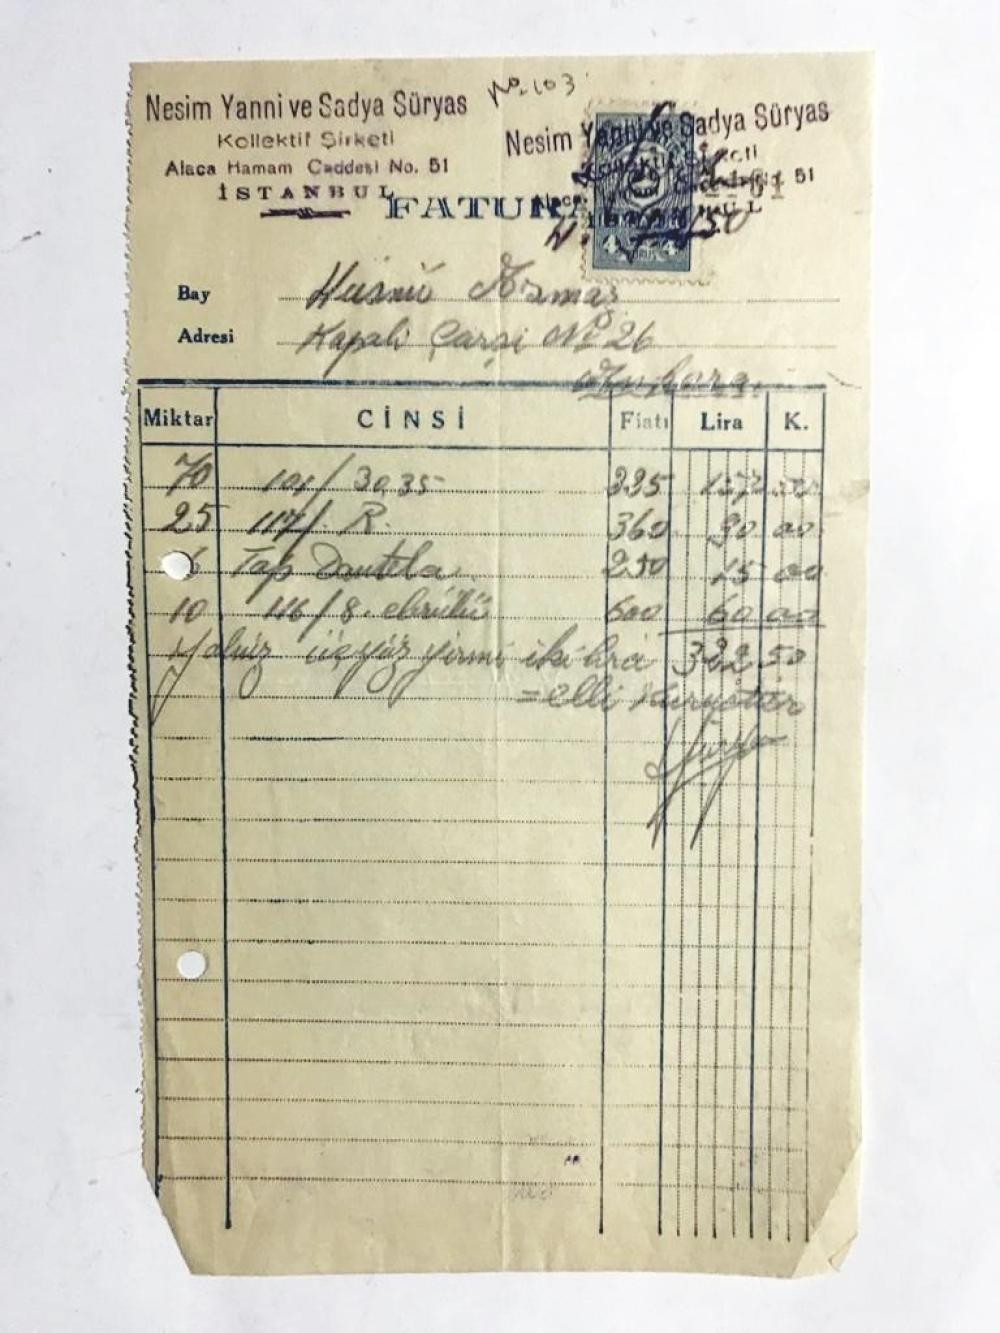 No. 103
Nesim Yanni ve Sadya Süryas
Kollektif Şirketi
Alaca Hamam Caddesi No. 51
İSTANBUL
Nesim Yanni ve Sadya Süryas
Kollektif Şirketi
51
FATURA
4 4
Bay Hüsnü
Adresi Kapalı Çarşı No 26
Ankara
Miktar CİNSİ Fiatı Lira K.
70 101/3035 225 157 50
25 117/. R. 360 90 00
6 Tap Dantela 250 15 00
10 116/8. ebrülü 600 60 00
Yalnız üçyüz yirmi iki lira 322 50
=elli kuruştur